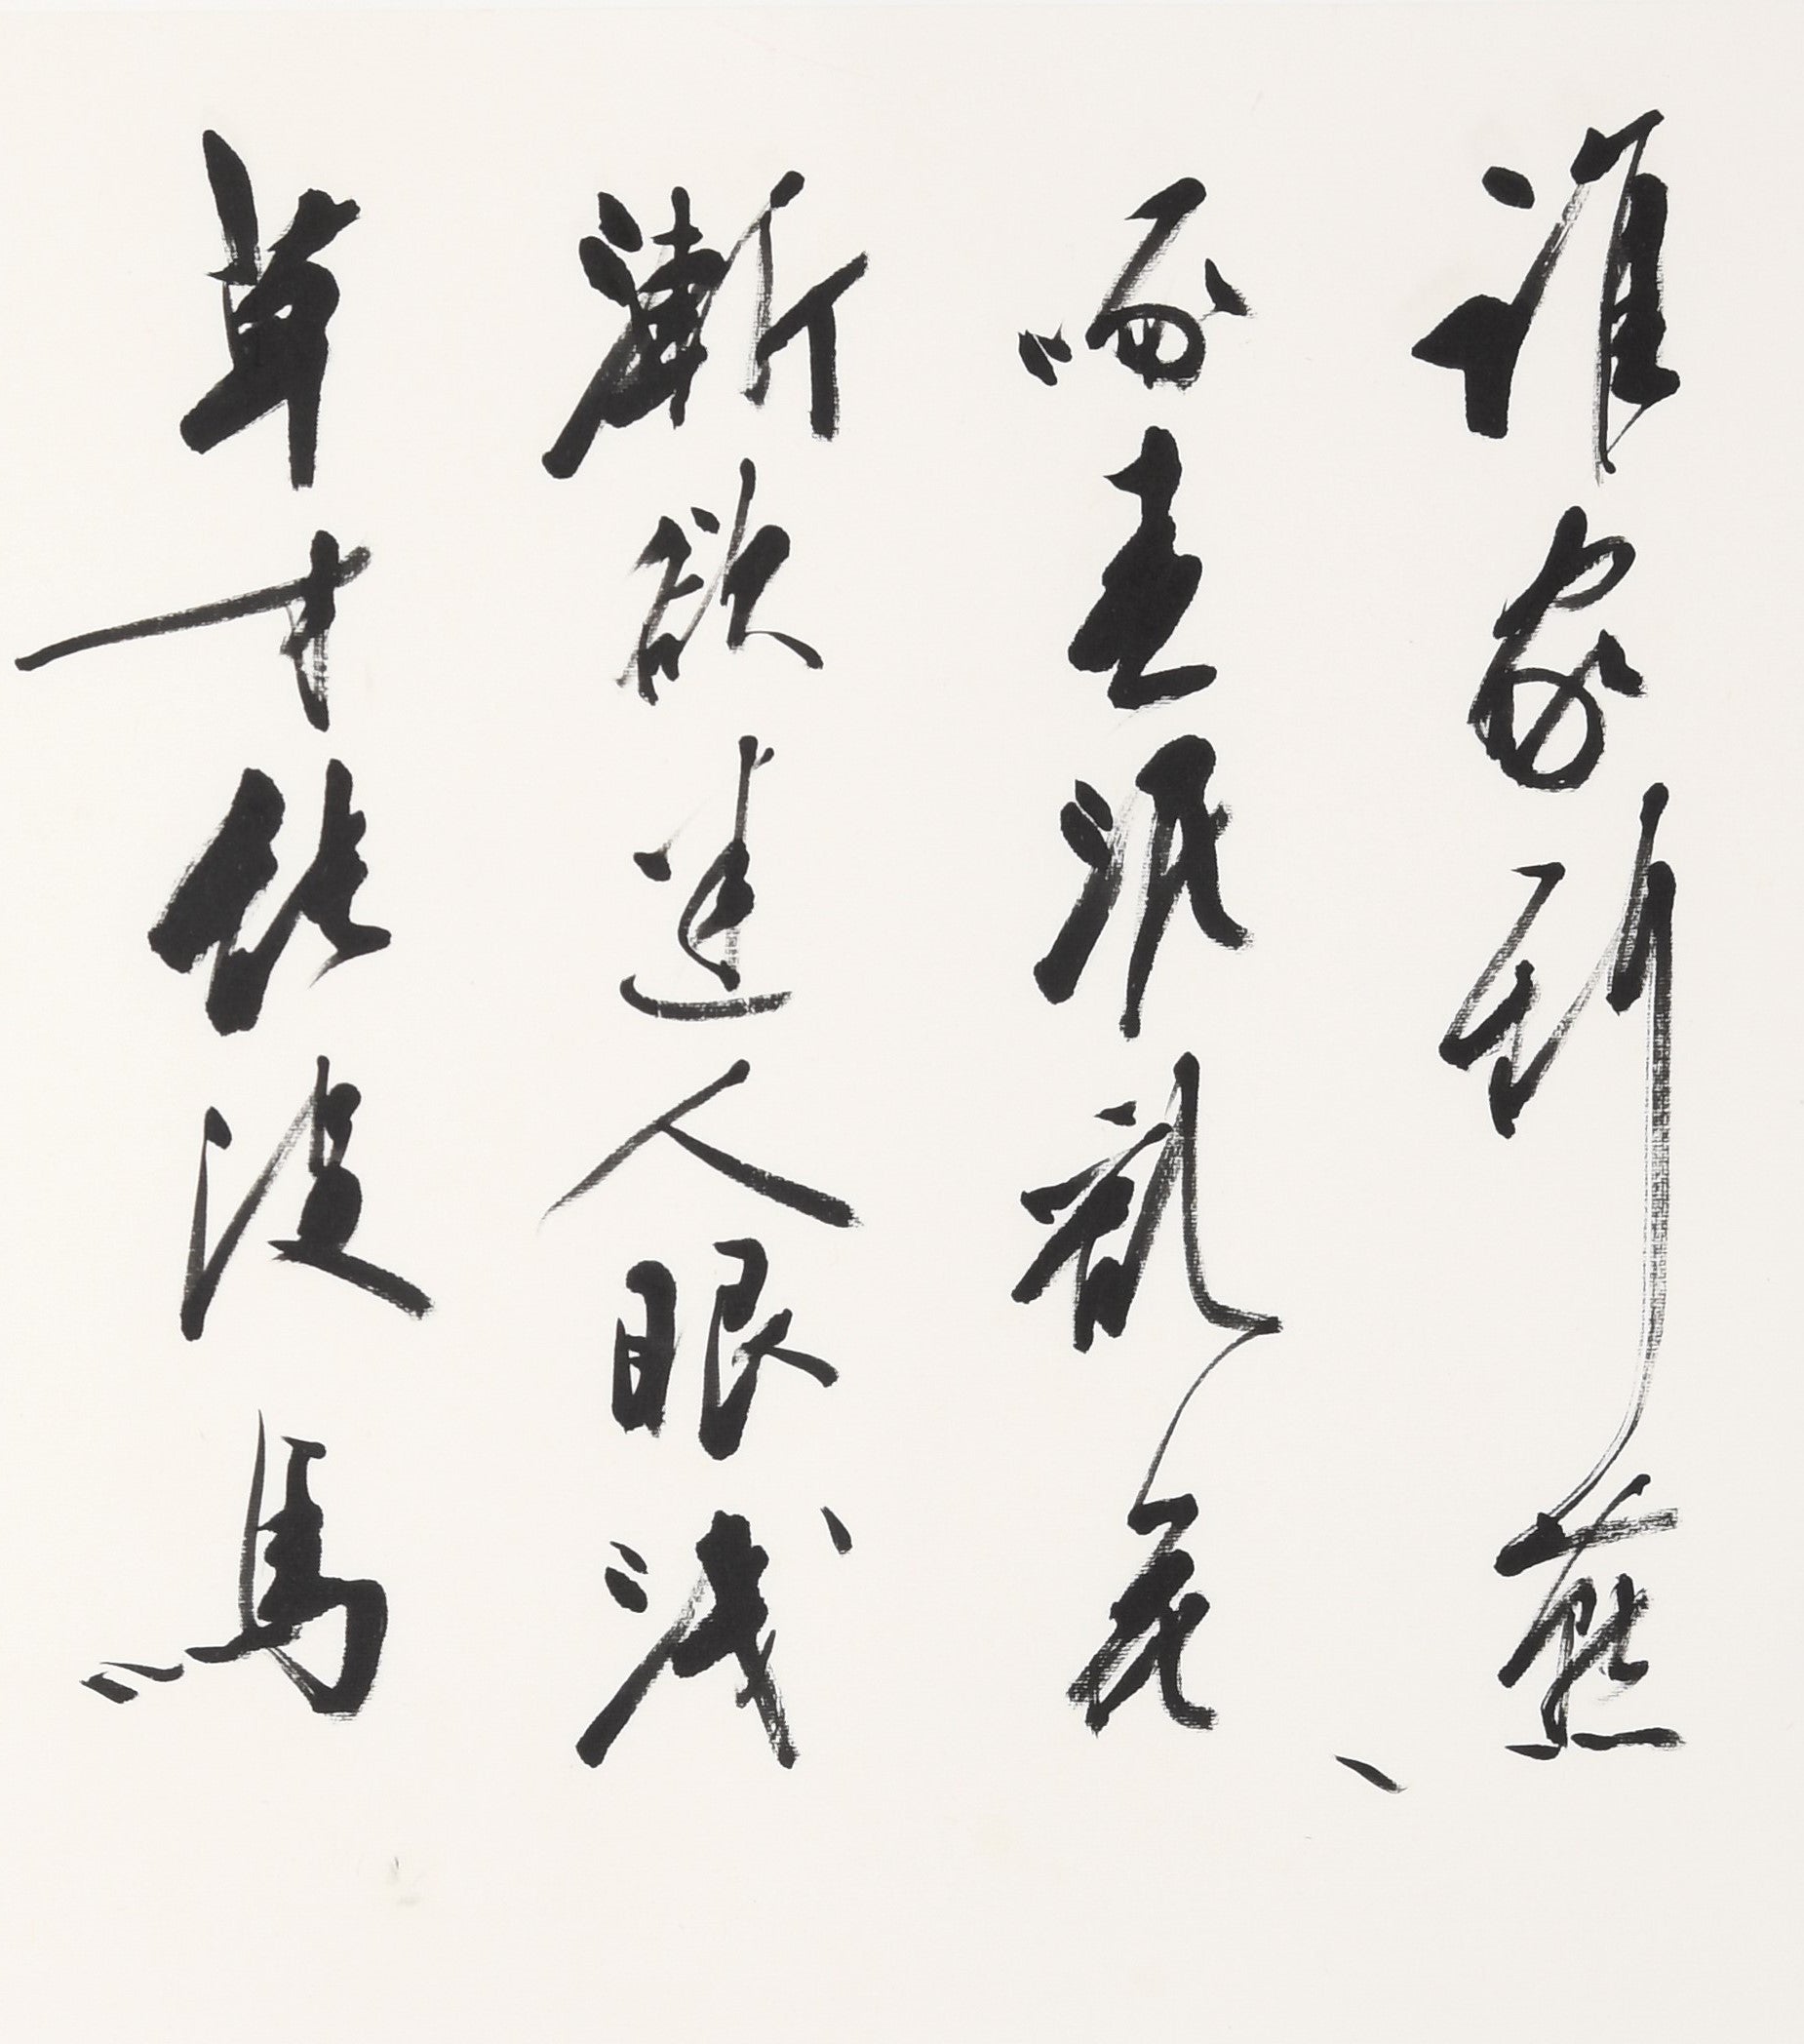 誰家新燕
啄春泥亂花
漸欲迷人眼浅
草才能没馬